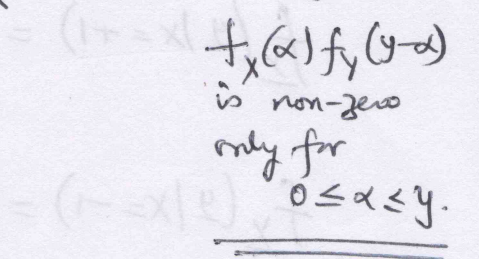 f_X(α) f_Y(y-α)
is non-zero
only for
0 ≤ α ≤ y.